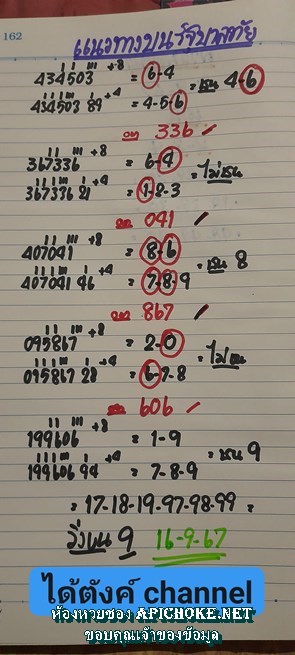 162
แนวทางบนรัฐบาลไทย
434503 +8 = 6-4
= ชน 4-6
434503 89 +4 = 4-5-6
ออก 336 ✓
367336 +8 = 6-4
= ไม่ชน
367336 21 +4 = 1-2-3
041 ✓
407041 +8 = 8-6
= ชน 8
407041 46 +4 = 7-8-9
ออก 867 ✓
095867 +8 = 2-0
= ไม่ชน
095867 28 +4 = 6-7-8
606 ✓
199606 +8 = 1-9
= ชน 9
199606 94 +4 = 7-8-9
= 17-18-19-97-98-99 =
วิ่งบน 9 16-9-67
ได้ตังค์ channel
ห้องหวยซอง APICHOKE.NET
ขอบคุณเจ้าของข้อมูล